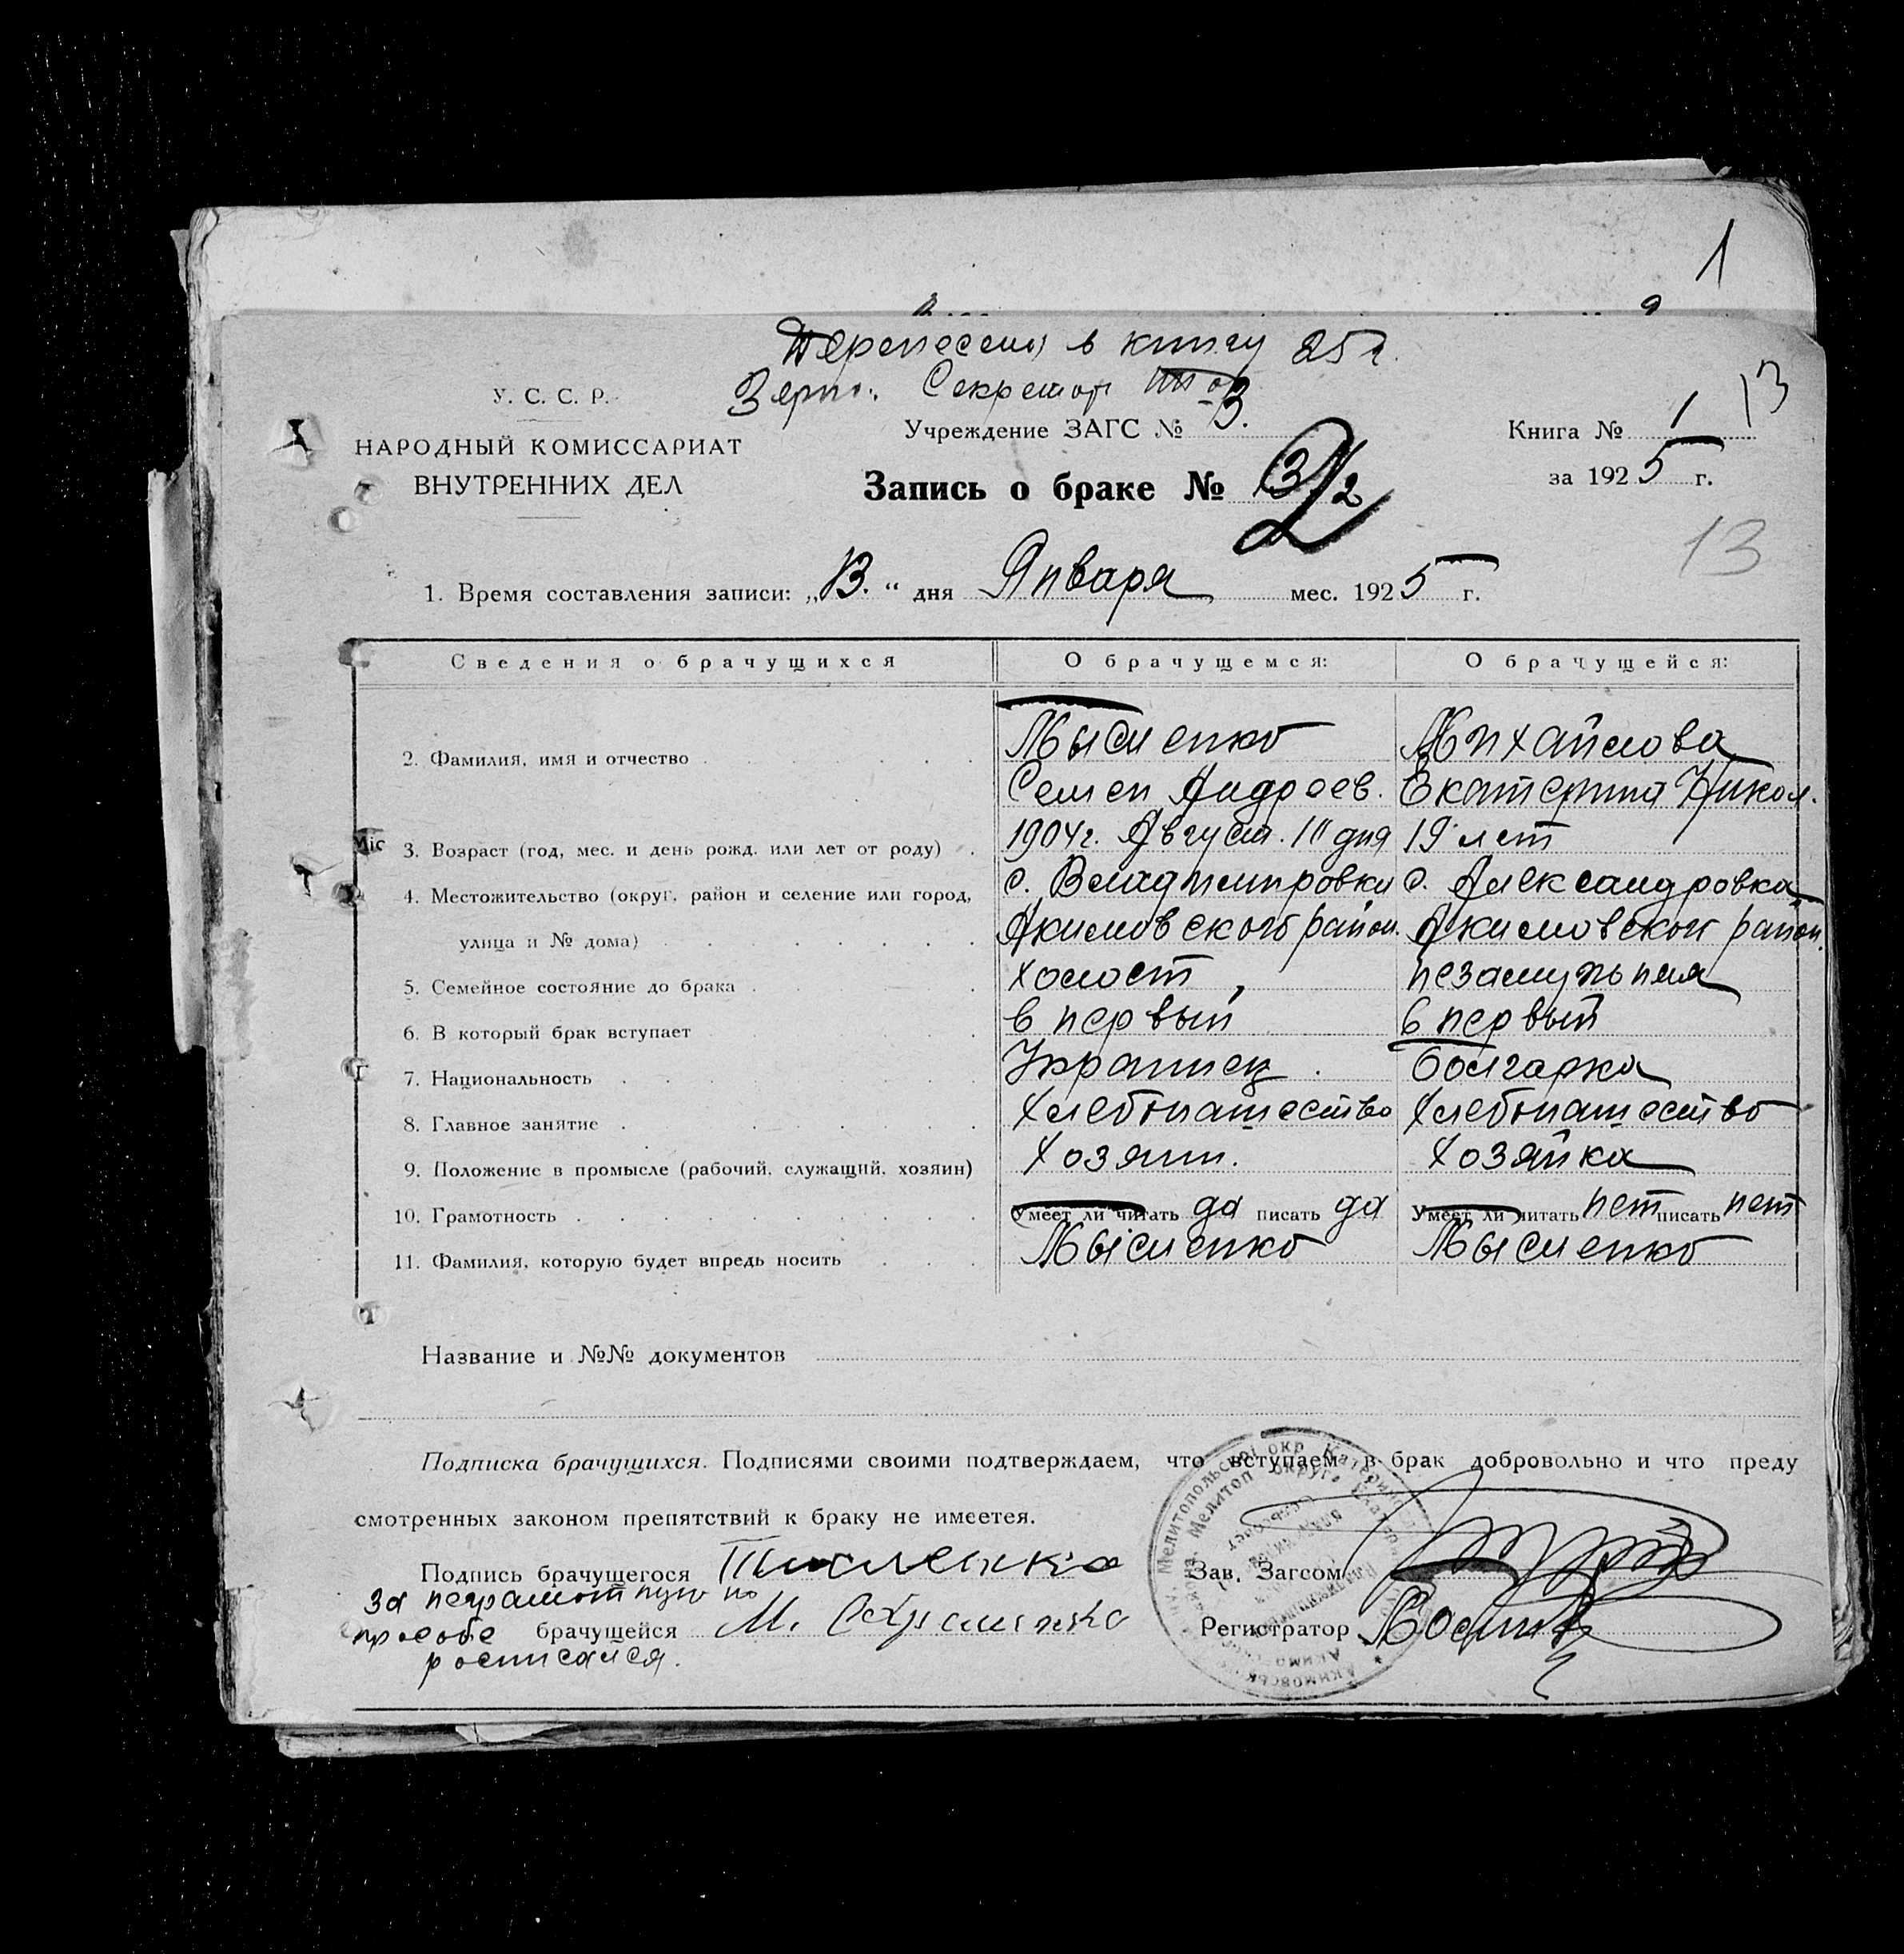 1
Перенесен в книгу 25 г.
Секретар
У. С. С. Р.
НАРОДНЫЙ КОМИССАРИАТ
ВНУТРЕННИХ ДЕЛ
Учреждение ЗАГС № 3.
Запись о браке № 3/2 2
Книга № 1 13
за 1925 г.
13
1. Время составления записи: „13.“ дня Января мес. 1925 г.
Сведения о брачущихся О брачущемся: О брачущейся:
Мысленко Михайлова
2. Фамилия, имя и отчество
Семен Андреев. Екатерина Никол.
3. Возраст (год, мес. и день рожд. или лет от роду) 1904 г. Август. 11 дня 19 лет
4. Местожительство (округ, район и селение или город, с. Владимировки с. Александровка
улица и № дома) Акимовского район. Акимовской район.
5. Семейное состояние до брака холост незамужняя
6. В который брак вступает в первый в первый
7. Национальность Украинец. болгарка
8. Главное занятие хлебопашество хлебопашество
9. Положение в промысле (рабочий, служащий, хозяин) хозяин. хозяйка
10. Грамотность Умеет ли читать да писать да Умеет ли читать нет писать нет
11. Фамилия, которую будет впредь носить Мысленко Мысленко
Название и №№ документов
Подписка брачущихся. Подписями своими подтверждаем, что вступаем в брак добровольно и что преду
смотренных законом препятствий к браку не имеется.
Подпись брачущегося
Зав. Загсом
За неграмотную по
просьбе брачущейся М.
Регистратор
росписался.